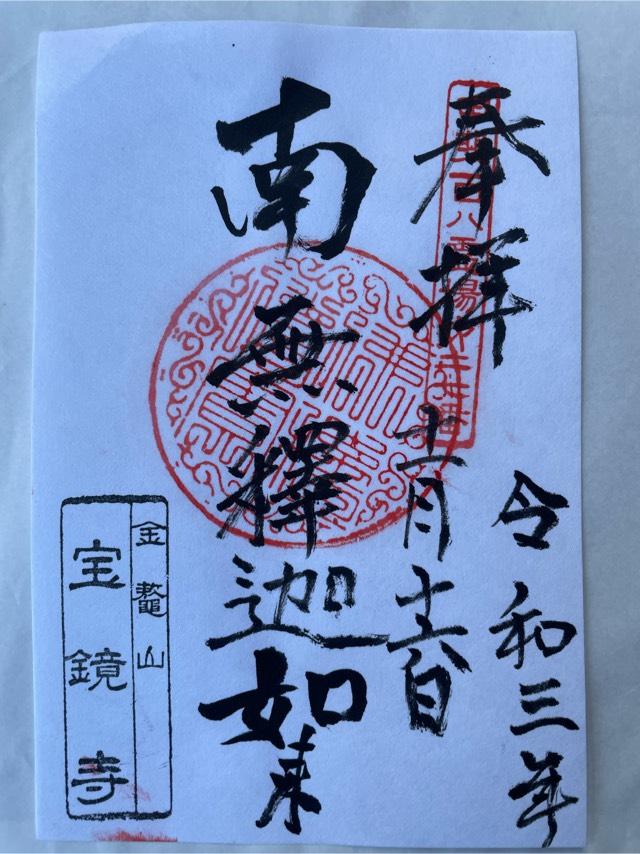 令和三年
奉拝
十一月十六日
百八霊場
南無釋迦如来
金鼇山
宝鏡寺